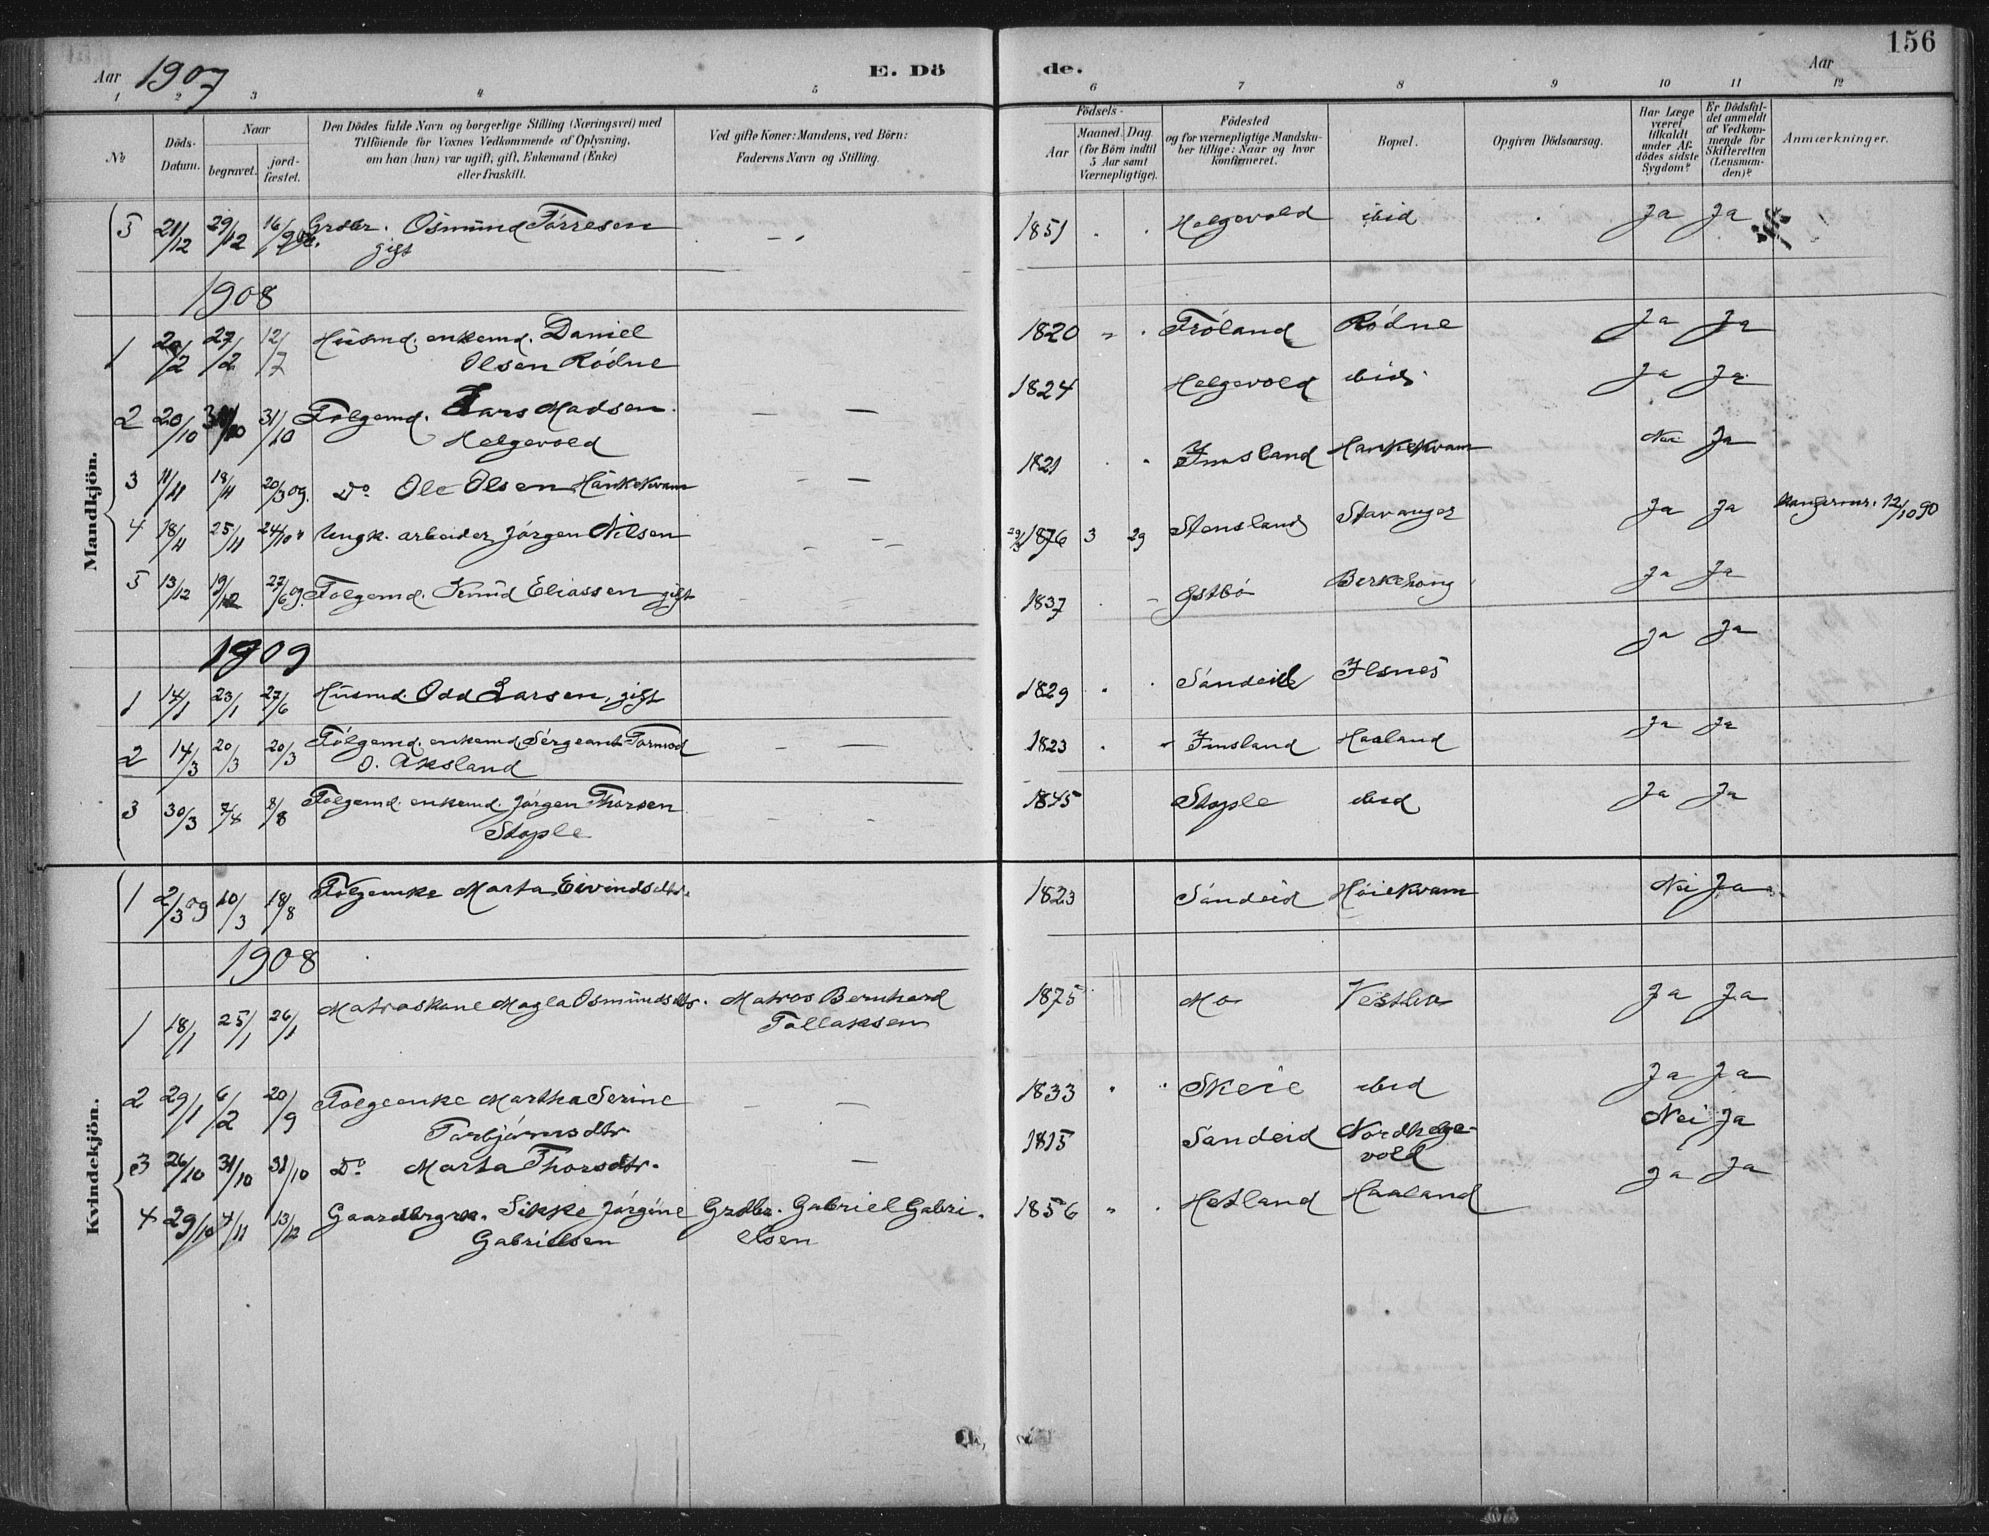 Aar 1907 E. Dö de. Aar 156
1 2 3 4 5 6 7 8 9 10 11 12
№ Döds-Datum. Naar begravet. jord-fæstet. Den Dödes fulde Navn og borgerlige Stilling (Næringsvei) med Tilföiende for Voxnes Vedkommende af Oplysning, om han (hun) var ugift, gift, Enkemand (Enke) eller fraskilt. Ved gifte Koner: Mandens, ved Börn: Faderens Navn og Stilling. Födsels- Aar Maaned. Dag. (for Börn indtil 5 Aar samt Værnepligtige). Födested og for værnepligtige Mandskaber tillige: Naar og hvor konfirmeret. Bopæl. Opgiven Dödsaarsag. Har Læge været tilkaldt under Afdödes sidste Sygdom? Er Dödsfaldet anmeldt af Vedkommende for Skifteretten (Lensmanden)? Anmærkninger.
Mandkjön.
5 21/12 29/12 16/9 08. Grdbr. Osmund Tórresen 1851 Helgevold ibid Ja Ja
gift
1908
1 20/2 27/2 12/7 Husmd. enkemd. Daniel 1820 Fróland Ródne Ja Ja
Olsen Ródne
2 20/10 31/10 31/10 Folgemd. Lars Madsen 1824 Helgevold ibid. Ja Ja
Helgevold
3 11/11 18/11 20/3 09. Do Ole Olsen Hankekvam 1821 Imsland Hankekvam Nei Ja
4 18/11 25/11 24/10 " Ungk. arbeider Jórgen Nilsen 29/3 1876 3 29 Stensland Stavanger Ja Ja 12/10 90
5 13/12 19/12 27/6 09. Folgemd. Knud Eliassen gift 1837 Óstbó Berkehoug Ja Ja
1909
1 14/1 23/1 27/6 Husmd. Odd Larsen, gift 1829 Sandeid Ilsnes Ja Ja
2 14/3 20/3 20/3 Fólgemd. enkemd. Sergeant Tormod 1823 Imsland Haaland Ja Ja
O. Aksland
3 30/3 7/4 8/8 Folgemd. enkemd. Jórgen Thorsen 1845 Stople ibid Ja Ja
Stople
Kvindekjön.
1 2/3 09 10/3 18/8 Folgeenke Marta Eivindsdtr. 1823 Sandeid Hóiekvam Nei Ja
1908
1 18/1 25/1 26/1 Matroskone Magla Osmundsdtr. Matros Bernhard 1875 Mo Vestbó Ja Ja
Tollaksen
2 29/1 6/2 20/9 Folgeenke Martha Serine 1833 Skeie ibid Ja Ja
Torbjórnsdtr.
3 26/10 31/10 31/10 Do Marta Thorsdtr. 1815 Sandeid Nordhelge- Nei Ja
vold
4 29/10 7/11 13/12 Gaardbrgrk. Sikke Jórgine Grdbr. Gabriel Gabri- 1856 Hetland Haaland Ja Ja
Gabrielsen elsen